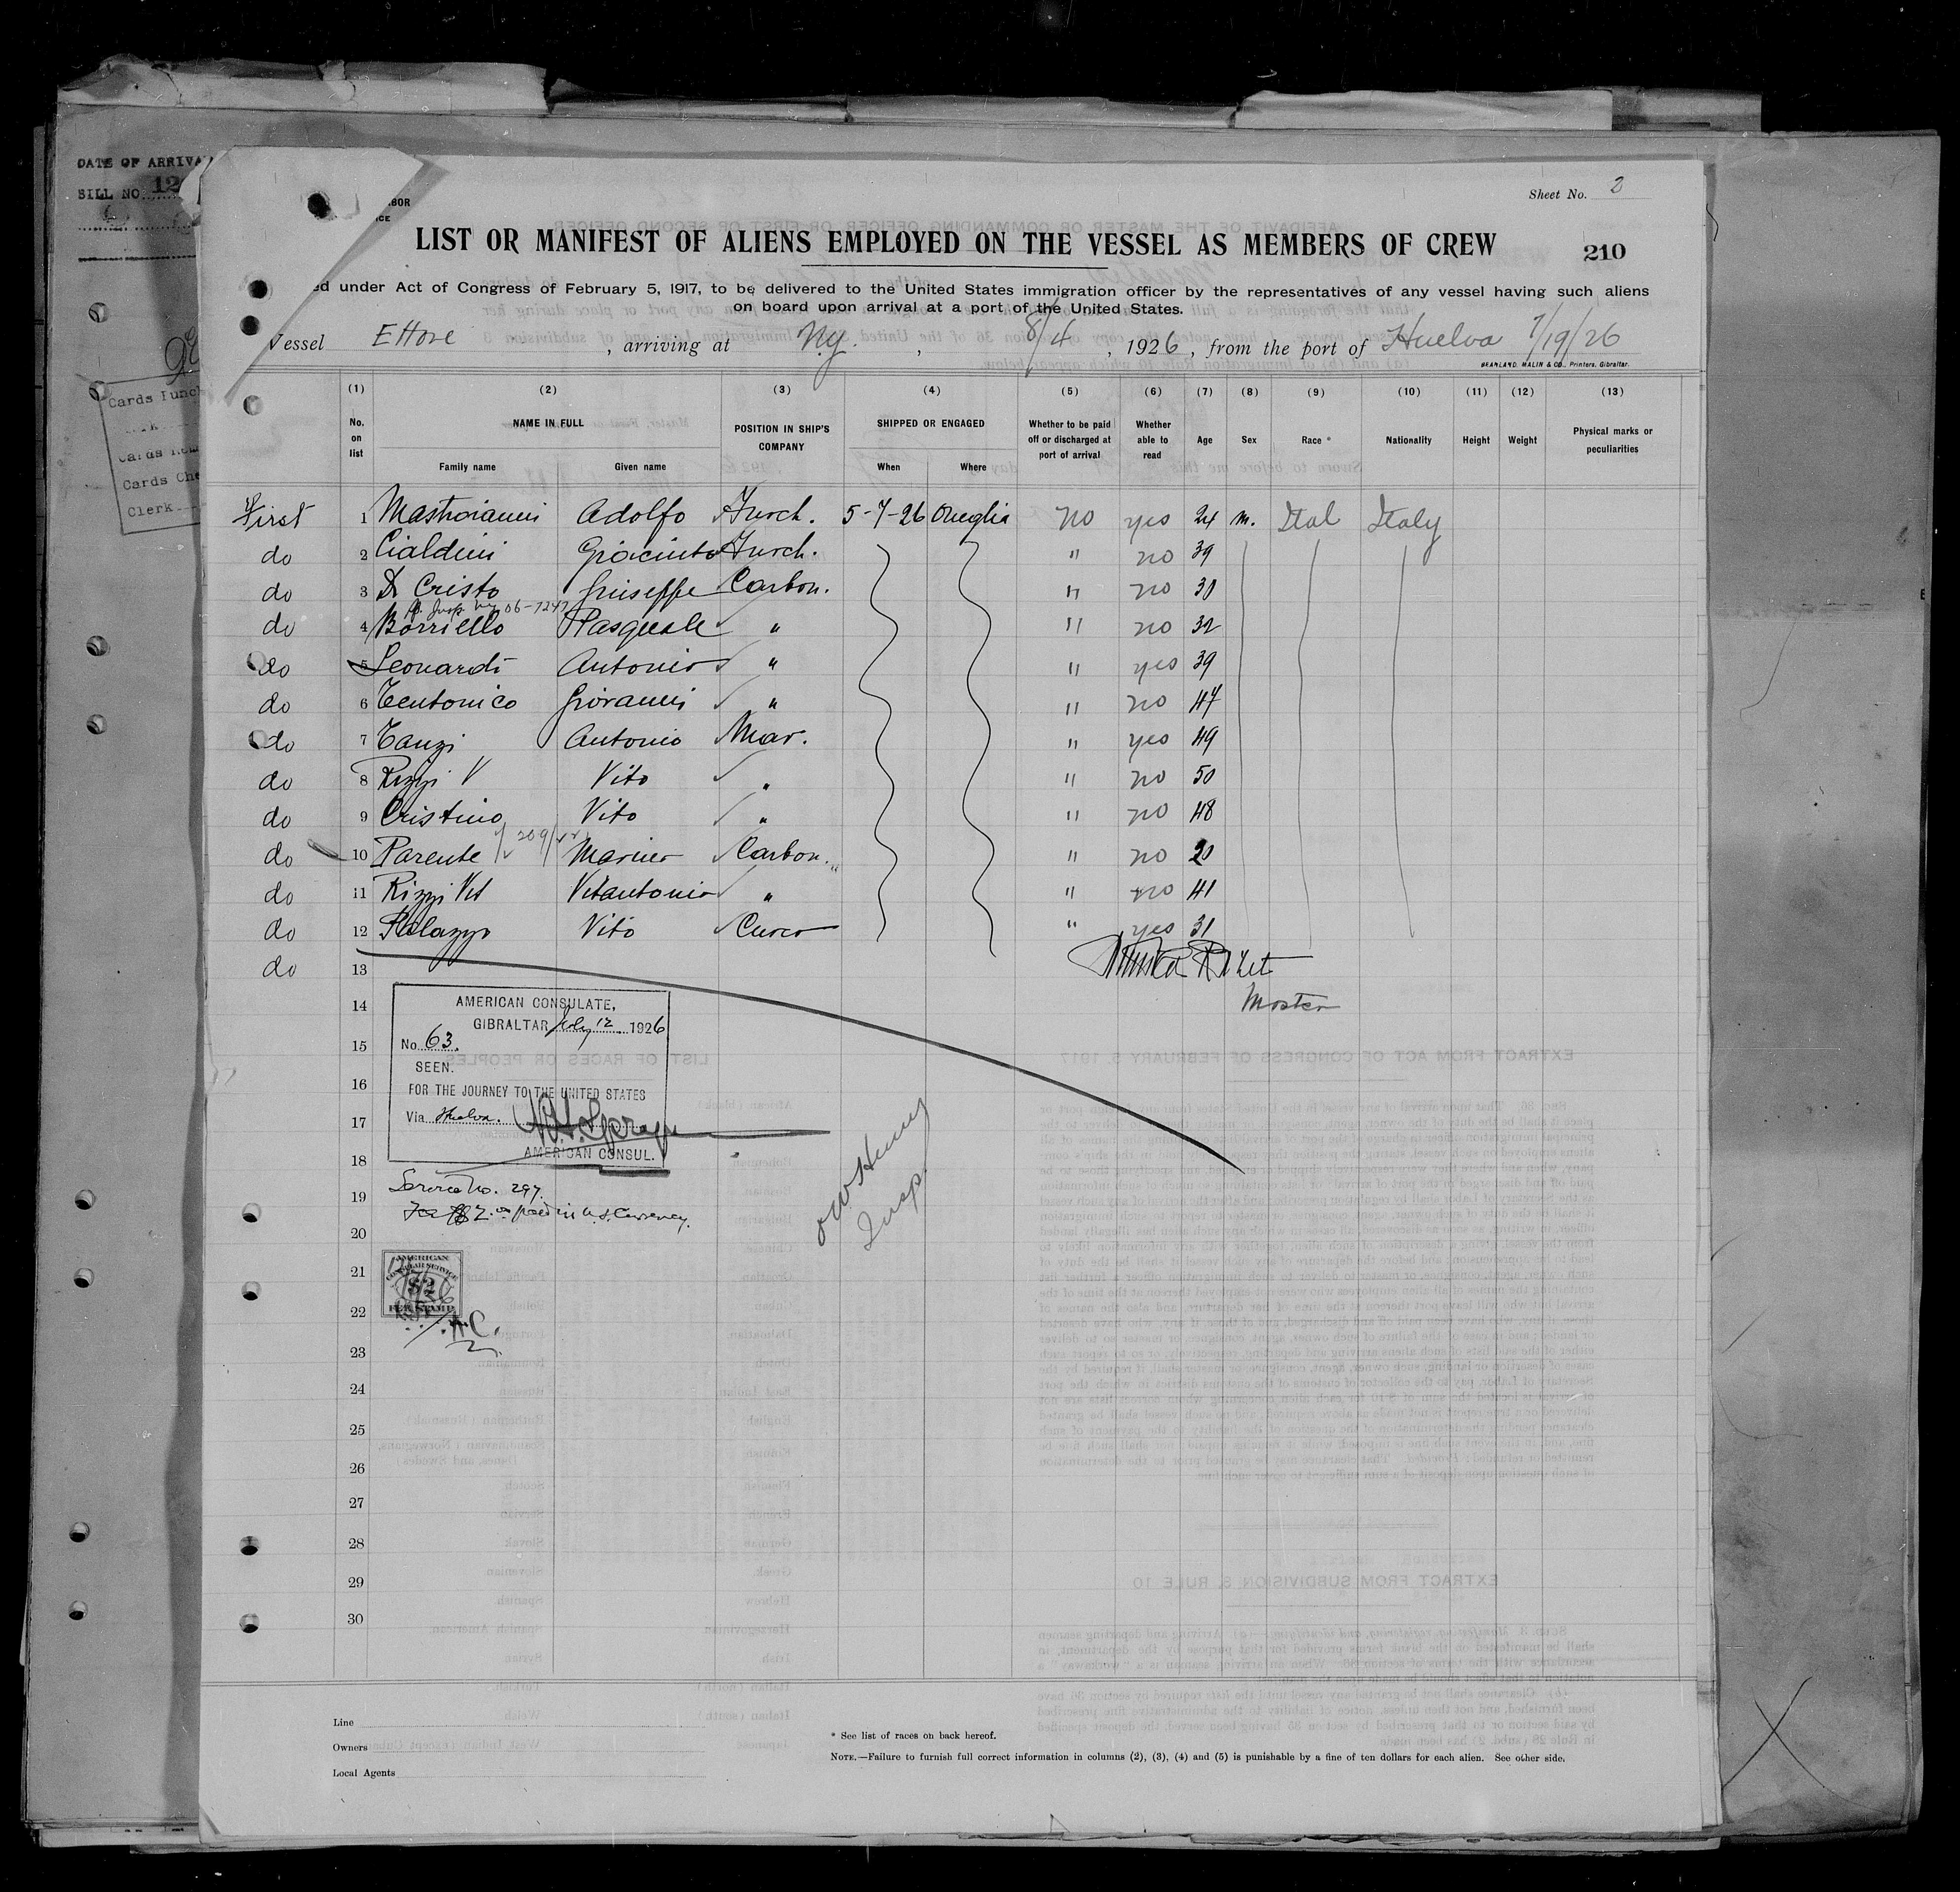 DATE OF ARRIVA
BILL NO. 12
Cards Punch
Cards Che
Clerk
BOR
ICE
Sheet No. 2
LIST OR MANIFEST OF ALIENS EMPLOYED ON THE VESSEL AS MEMBERS OF CREW
210
ed under Act of Congress of February 5, 1917, to be delivered to the United States immigration officer by the representatives of any vessel having such aliens
on board upon arrival at a port of the United States.
Vessel Ettore, arriving at N.Y., 8/4, 1926, from the port of Huelva 7/19/26
BEANLAND, MALIN & CO., Printers, Gibraltar.
(1) (2) (3) (4) (5) (6) (7) (8) (9) (10) (11) (12) (13)
No. on list NAME IN FULL POSITION IN SHIP'S COMPANY SHIPPED OR ENGAGED Whether to be paid off or discharged at port of arrival Whether able to read Age Sex Race * Nationality Height Weight Physical marks or peculiarities
Family name Given name When Where
First 1 Mastroianni Adolfo Furch. 5-7-26 Oneglia no yes 24 m. Ital Italy
do 2 Cialdini Giacinto Furch. " no 39
do 3 Di Cristo Giuseppe Carbon. " no 30
do 4 Borriello Pasquale " " no 32
do 5 Leonardi Antonio " " yes 39
do 6 Teutonico Giovanni " " no 47
do 7 Tanzi Antonio Mar. " yes 49
do 8 Rizzi V Vito " " no 50
do 9 Cristino Vito " " no 48
do 10 Parente Marino Carbon. " no 20
do 11 Rizzi Vit Vitantonio " " no 41
do 12 Palazzo Vito Cuoco " yes 31
do 13
Master
14
AMERICAN CONSULATE,
GIBRALTAR July 12 1926
No. 63.
15
SEEN.
16
FOR THE JOURNEY TO THE UNITED STATES
17
Via Huelva.
AMERICAN CONSUL.
18
Service No. 297.
19
Fee $2.00 paid in U.S. Currency.
Insp.
20
AMERICAN
CONSULAR SERVICE
$2
FEE STAMP
21
22
23
24
25
26
27
28
29
30
Line
Owners
Local Agents
* See list of races on back hereof.
NOTE.—Failure to furnish full correct information in columns (2), (3), (4) and (5) is punishable by a fine of ten dollars for each alien. See other side.